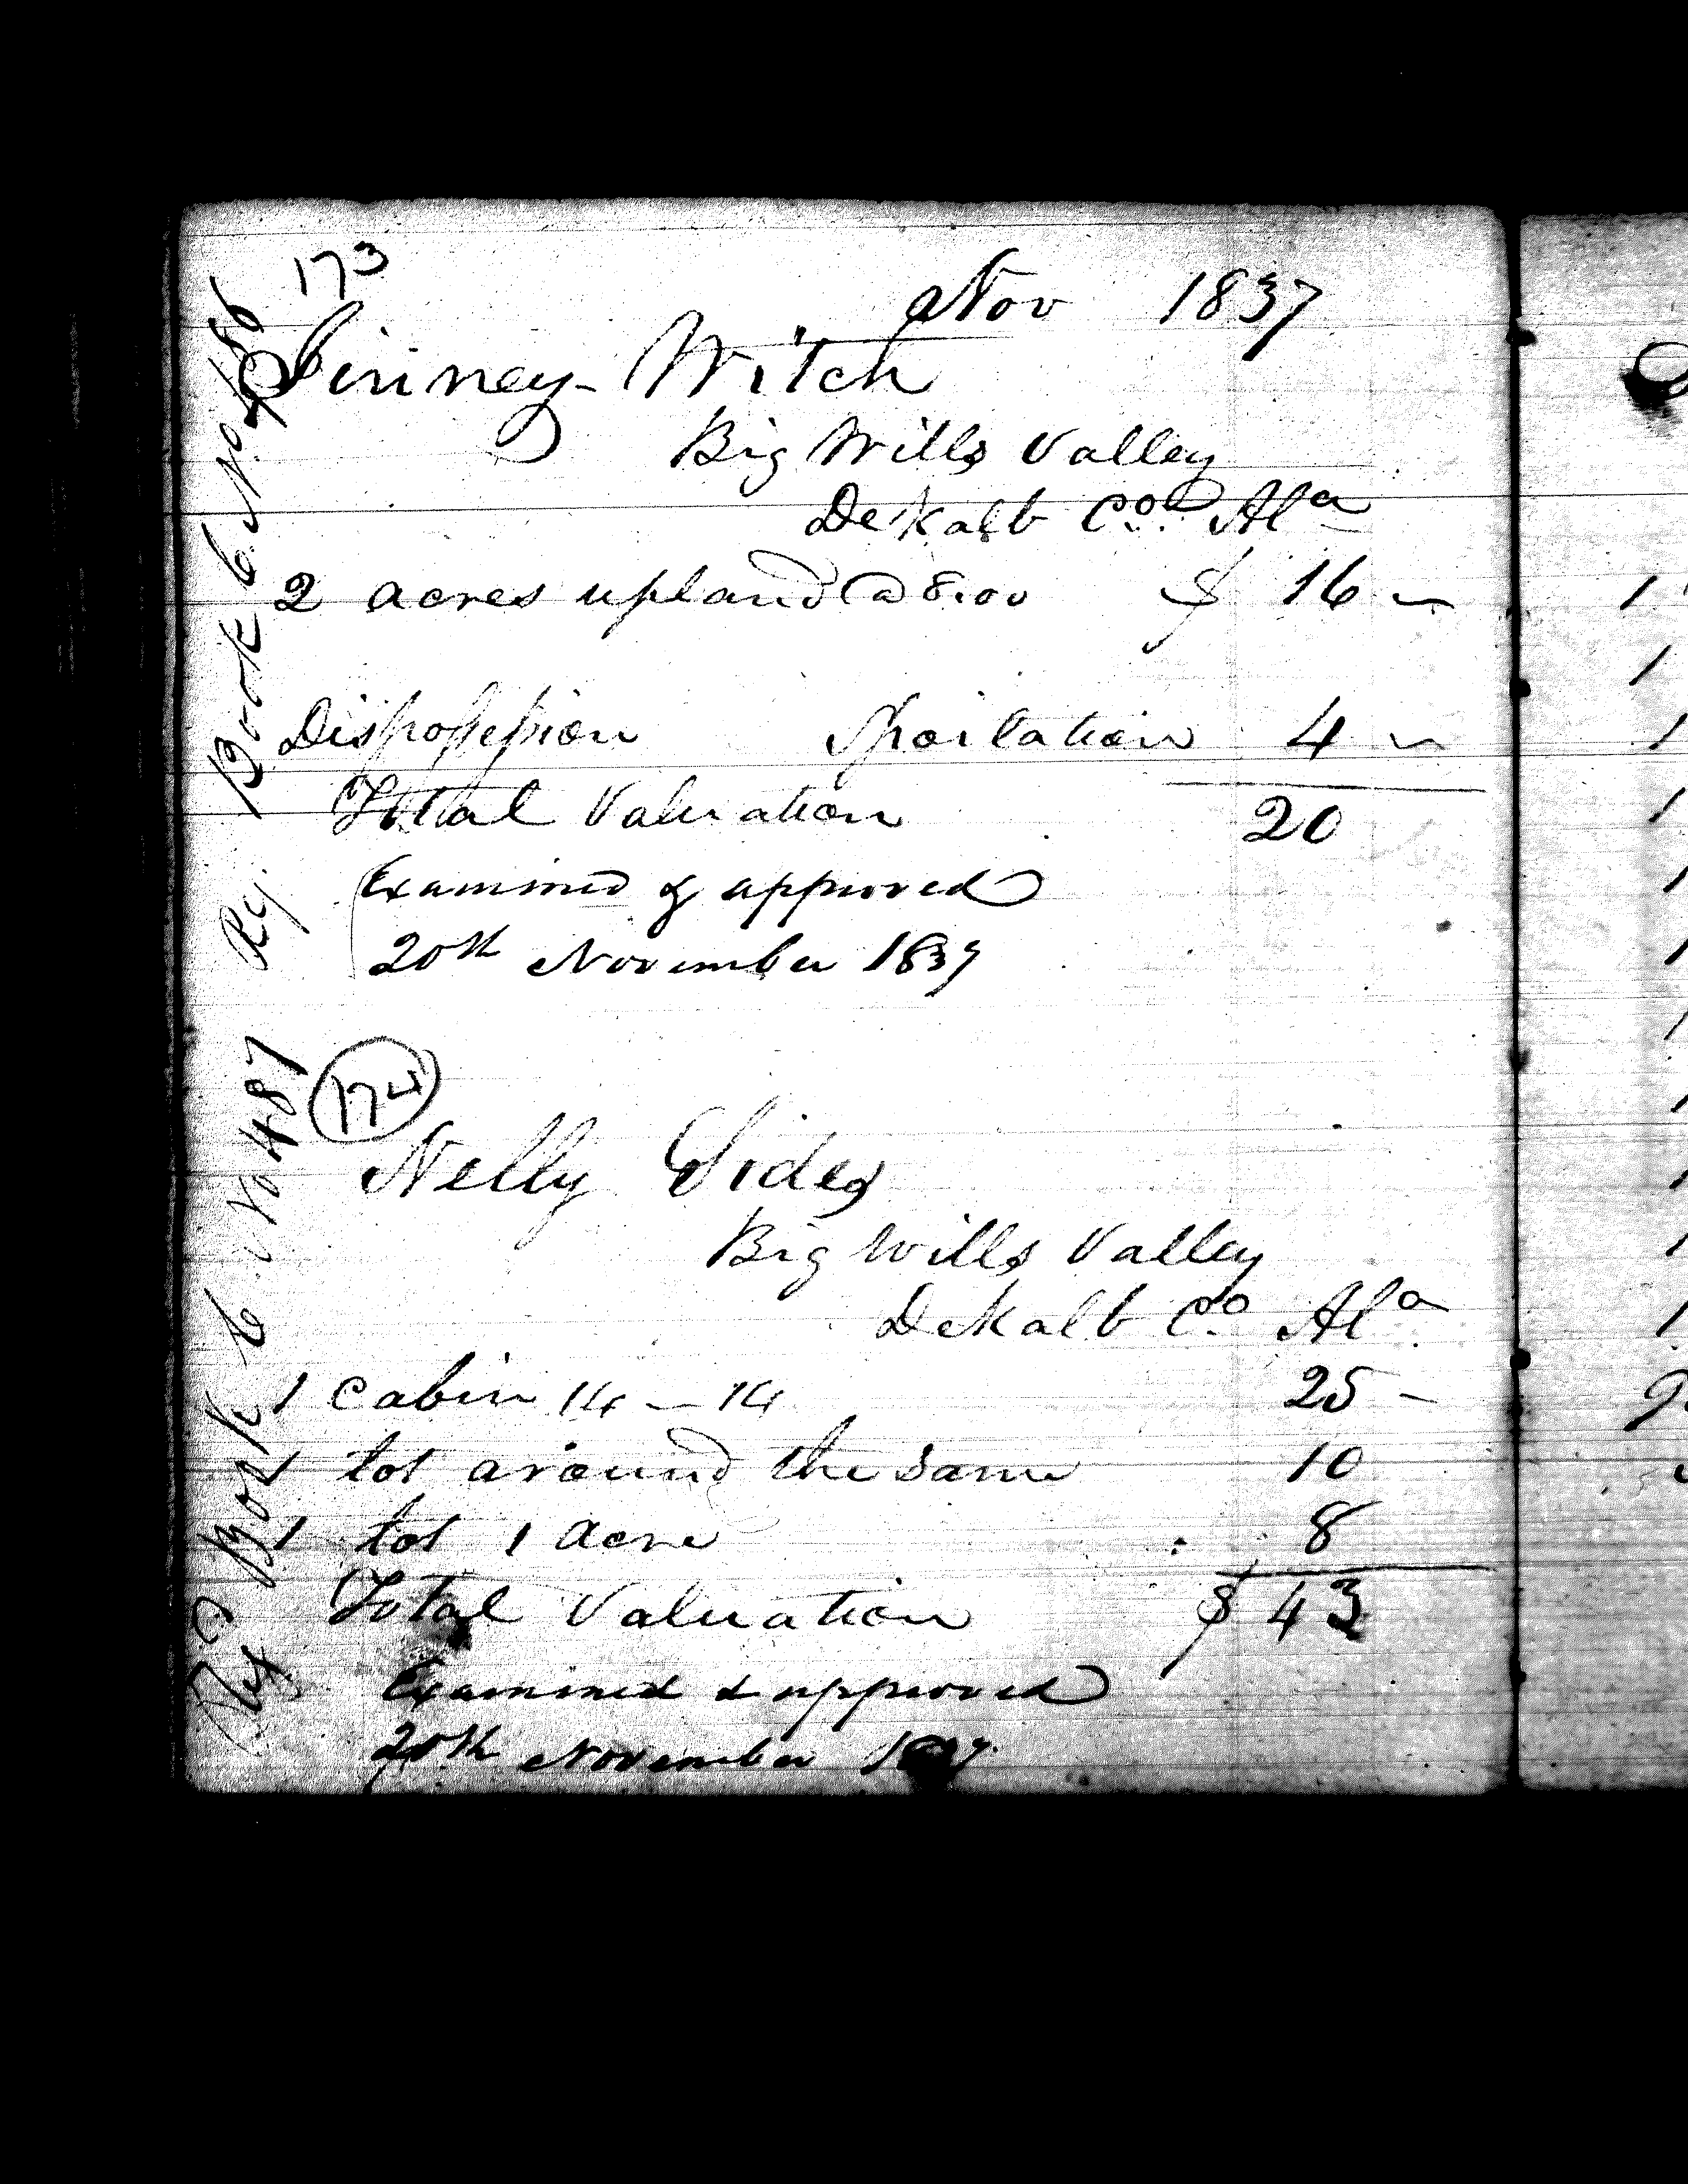 173
Nov 1837
Jinney Witch
Big Wills Valley
DeKalb Co. Ala
2 acres upland @ 8.00 $ 16 –
Dispossession Spoilation 4 –
Total Valuation 20
Examined & approved
20th November 1837
Reg. Book 6 No 486
174
Nelly Sides
Big Wills Valley
DeKalb Co Ala
1 Cabin 14 – 14 25 –
1 lot around the same 10
1 lot 1 acre 8
Total Valuation $ 43
Examined & approved
20th November 1837
Reg Book 6 No 487